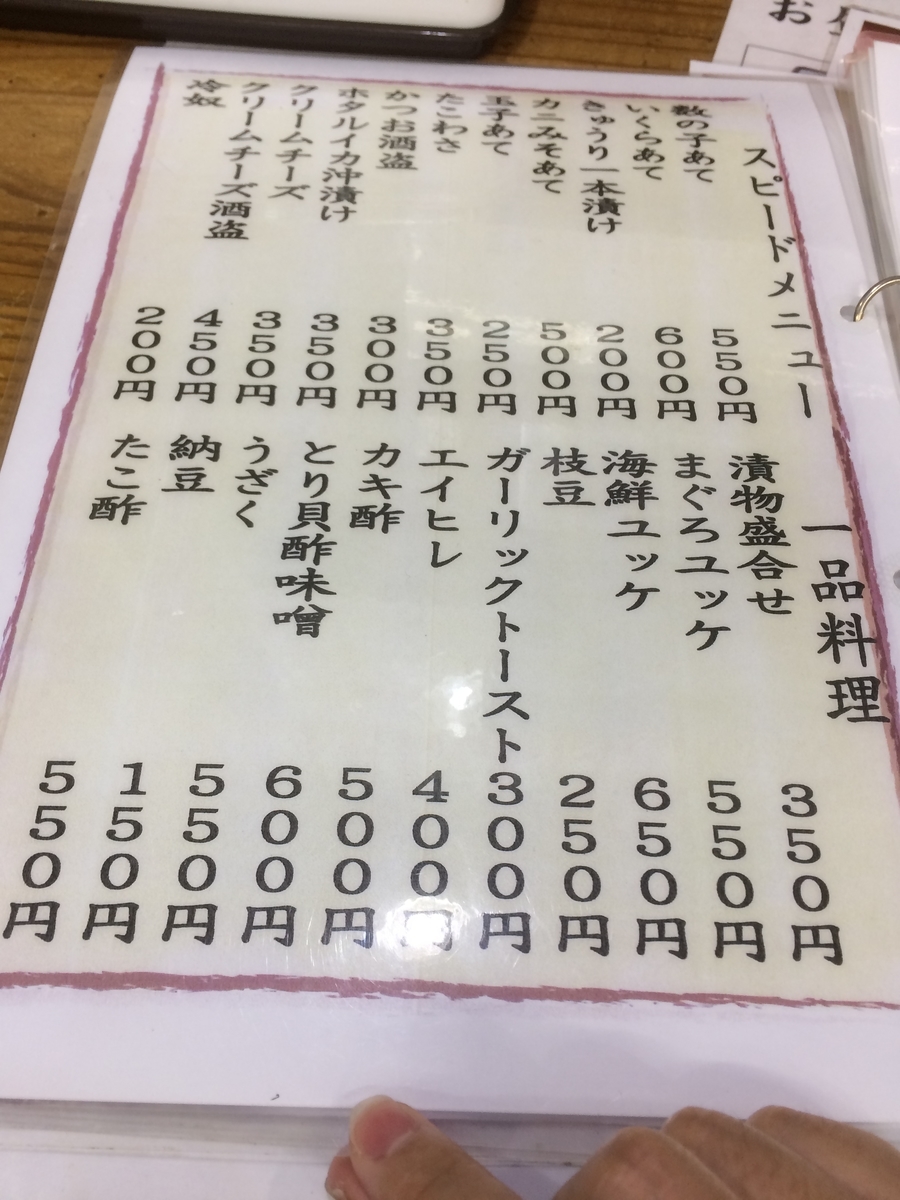 スピードメニュー
数の子あて 550円
いくらあて 600円
きゅうり一本漬け 200円
カニみそあて 500円
玉子あて 250円
たこわさ 350円
かつお酒盗 300円
ホタルイカ沖漬け 350円
クリームチーズ 350円
クリームチーズ酒盗 450円
冷奴 200円
一品料理
漬物盛合せ 350円
まぐろユッケ 550円
海鮮ユッケ 650円
枝豆 250円
ガーリックトースト 300円
エイヒレ 400円
カキ酢 500円
とり貝酢味噌 600円
うざく 550円
納豆 150円
たこ酢 550円
お